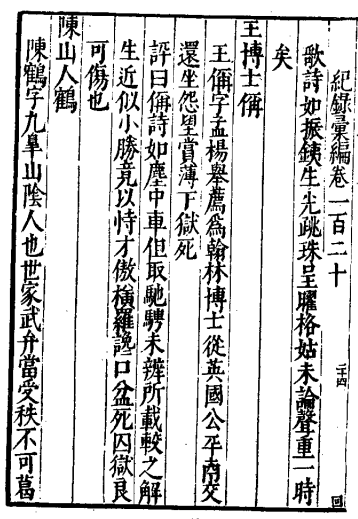 紀錄彙編卷一百二十
二十四
歌詩如振鐵生光跳珠呈曜格姑未論聲重一時
矣
王博士偁
王偁字孟楊舉薦為翰林博士從英國公平南交
還坐怨望賞薄下獄死
評曰偁詩如塵中車但取馳騁未辨所載較之解
生近似小勝竟以恃才傲橫羅讒口盆死囚獄良
可傷也
陳山人鶴
陳鶴字九臯山陰人也世家武弁當受秩不可葛